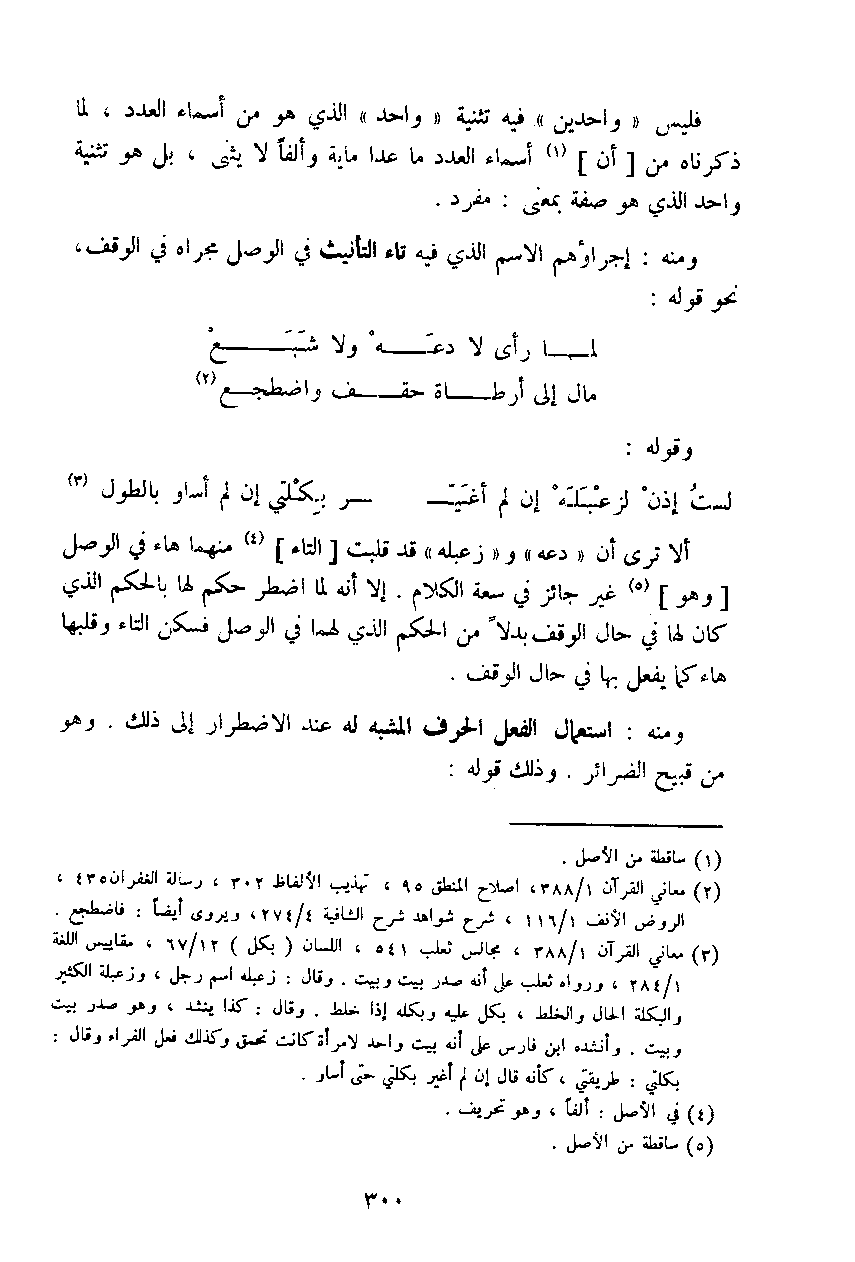 فليس « واحدين » فيه تثنية « واحد » الذي هو من أسماء العدد ، لما
ذكرناه من [ أن ] (١) أسماء العدد ما عدا ماية وألفاً لا يثنى ، بل هو تثنية
واحد الذي هو صفة بمعنى : مفرد .
ومنه : إجراؤهم الاسم الذي فيه تاء التأنيث في الوصل مجراه في الوقف،
نحو قوله :
لمـــا رأى لا دعَـــهْ ولا شَبَـــعْ
مال إلى أرطـــاة حقـــف واضطجـــع (٢)
وقوله :
لستُ إذنْ لزعْبَلَهْ إن لم أغَيّـــ ـــر بِكْلتي إن لم أساو بالطول (٣)
ألا ترى أن « دعه » و « زعبله » قد قلبت [ التاء ] (٤) منهما هاء في الوصل
[ وهو ] (٥) غير جائز في سعة الكلام . إلا أنه لما اضطر حكم لها بالحكم الذي
كان لها في حال الوقف بدلاً من الحكم الذي لهما في الوصل فسكن التاء وقلبها
هاء كما يفعل بها في حال الوقف .
ومنه : استعمال الفعل الحرف المشبه له عند الاضطرار إلى ذلك . وهو
من قبيح الضرائر . وذلك قوله :
(١) ساقطة من الأصل .
(٢) معاني القرآن ٣٨٨/١، اصلاح المنطق ٩٥ ، تهذيب الألفاظ ٣٠٢ ، رسالة الغفران٤٣٥ ،
الروض الأنف ١١٦/١ ، شرح شواهد شرح الشافية ٢٧٤/٤، ويروى أيضاً : فاضطجع .
(٣) معاني القرآن ٣٨٨/١ ، مجالس ثعلب ٥٤١ ، اللسان ( بكل ) ٦٧/١٢ ، مقاييس اللغة
٢٨٤/١ ، ورواه ثعلب على أنه صدر بيت وبيت . وقال : زعبله اسم رجل ، وزعبلة الكثير
والبكلة الحال والخلط ، بكل عليه وبكله إذا خلط . وقال : كذا ينشد ، وهو صدر بيت
وبيت . وأنشده ابن فارس على أنه بيت واحد لامرأة كانت تحمق وكذلك فعل الفراء وقال :
بكلتي : طريقتي ، كأنه قال إن لم أغير بكلتي حتى أساو .
(٤) في الأصل : ألفاً ، وهو تحريف .
(٥) ساقطة من الأصل .
٣٠٠